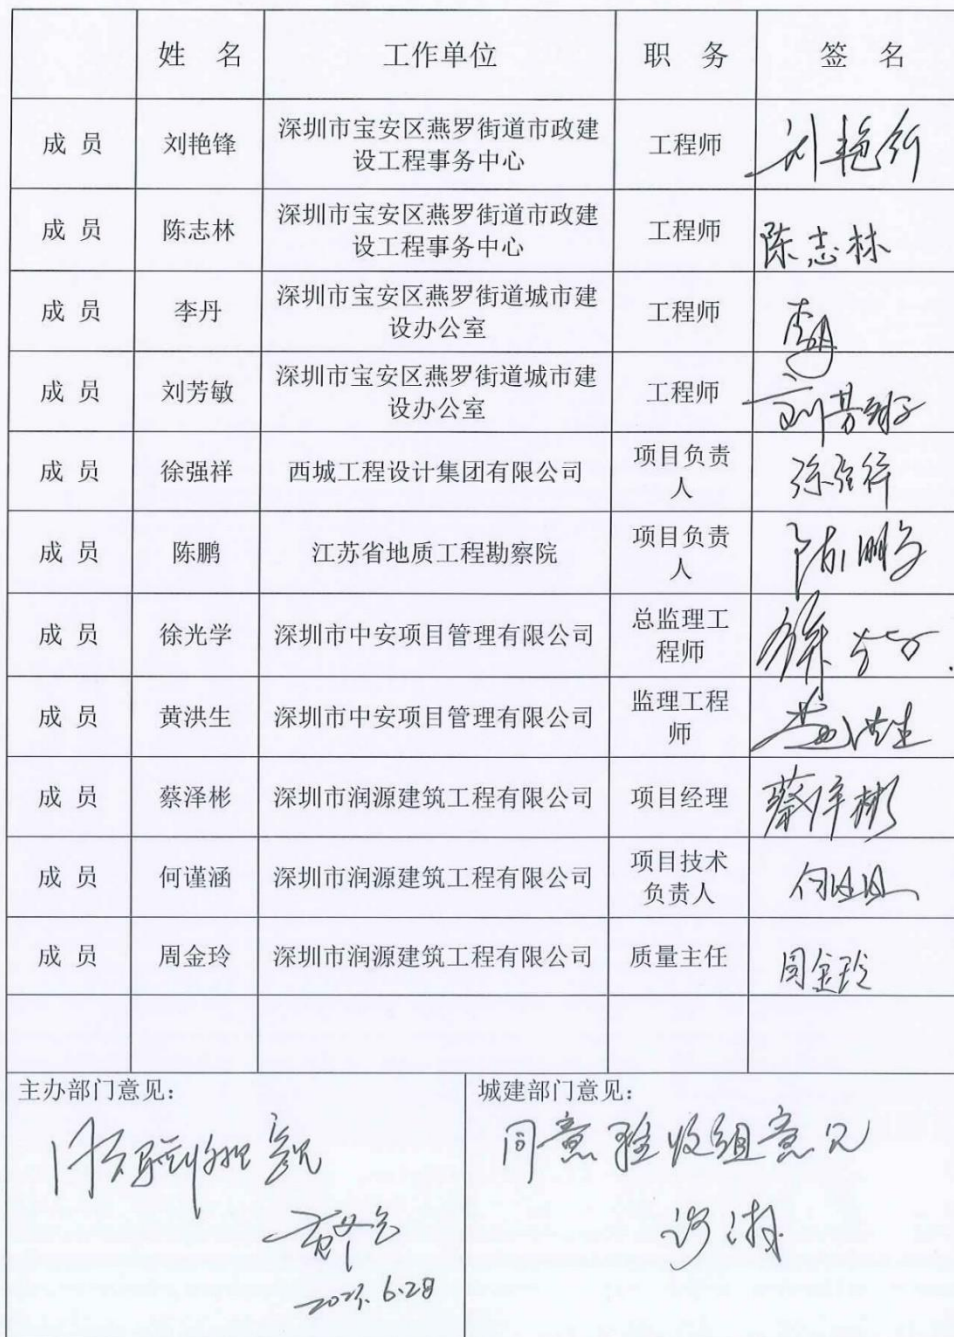 姓 名 工作单位 职 务 签 名
成 员 刘艳锋 深圳市宝安区燕罗街道市政建 工程师 刘艳锋
设工程事务中心
成 员 陈志林 深圳市宝安区燕罗街道市政建 工程师 陈志林
设工程事务中心
成 员 李丹 深圳市宝安区燕罗街道城市建 工程师 李丹
设办公室
成 员 刘芳敏 深圳市宝安区燕罗街道城市建 工程师 刘芳敏
设办公室
成 员 徐强祥 西城工程设计集团有限公司 项目负责 徐强祥
人
成 员 陈鹏 江苏省地质工程勘察院 项目负责 陈鹏
人
成 员 徐光学 深圳市中安项目管理有限公司 总监理工 徐光学
程师
成 员 黄洪生 深圳市中安项目管理有限公司 监理工程 黄洪生
师
成 员 蔡泽彬 深圳市润源建筑工程有限公司 项目经理 蔡泽彬
成 员 何谨涵 深圳市润源建筑工程有限公司 项目技术 何谨涵
负责人
成 员 周金玲 深圳市润源建筑工程有限公司 质量主任 周金玲
主办部门意见：
意见
6.28
城建部门意见：
同意验收组意见